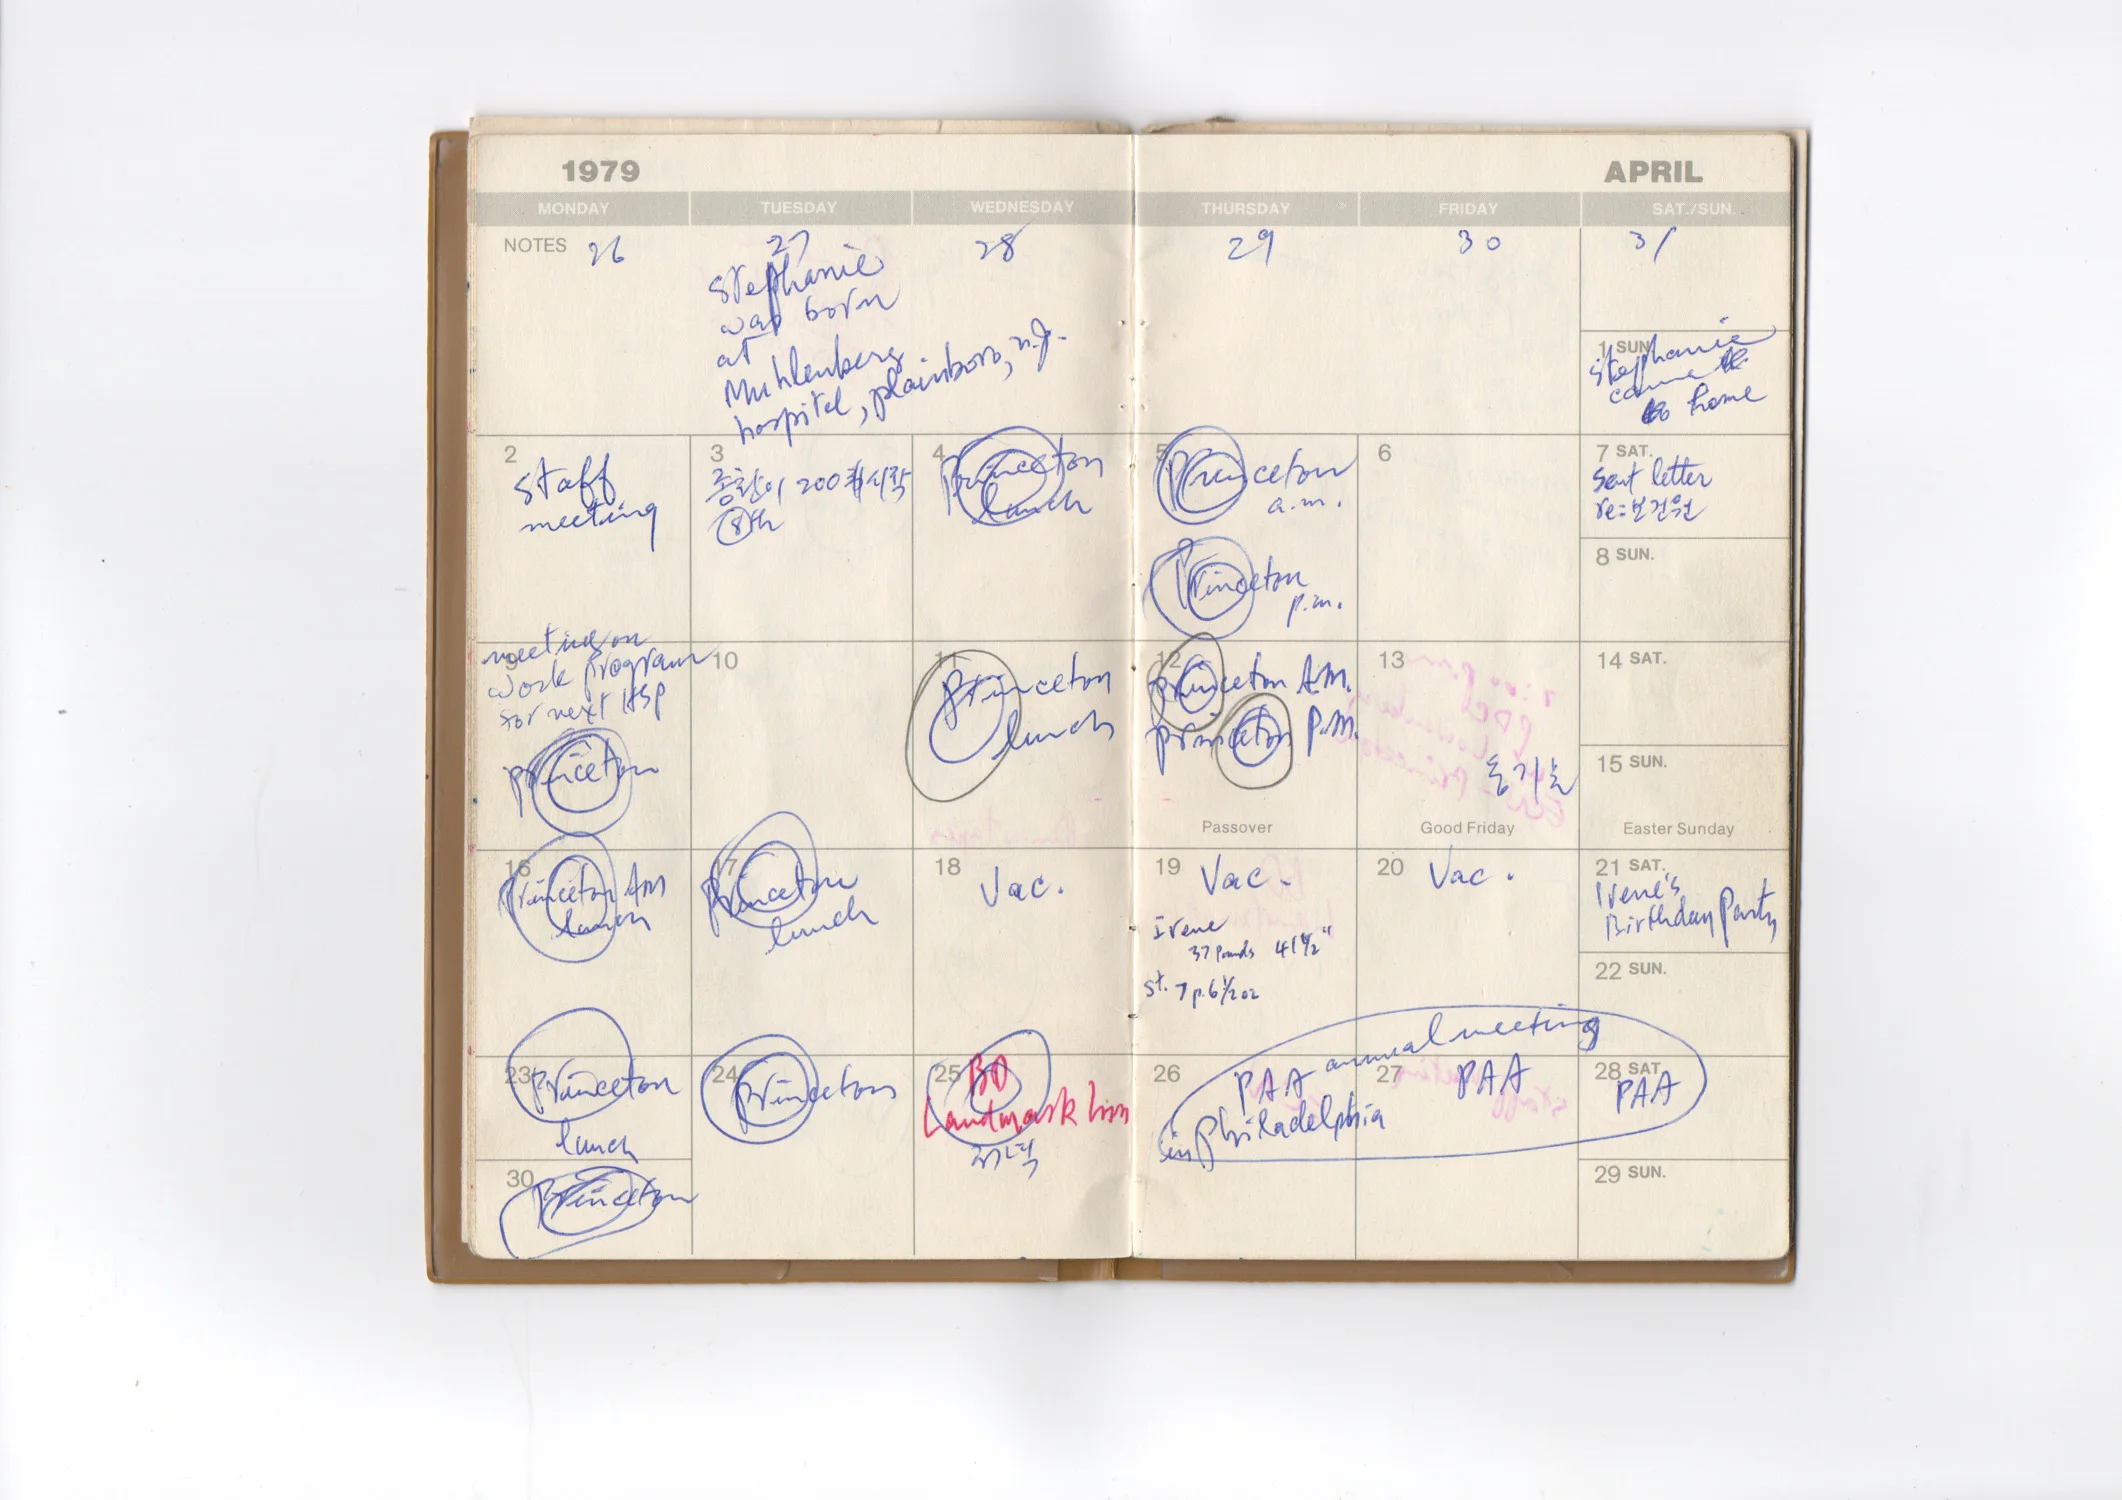 1979
APRIL
MONDAY
TUESDAY
WEDNESDAY
THURSDAY
FRIDAY
SAT./SUN.
NOTES 26
27
Stephanie
was born
at
Muhlenberg
hospital, plainboro, n.J.
28
29
30
31
1 SUN
Stephanie
came
to home
2
staff
meeting
3
200 시작
8th
4
Princeton
lunch
5
Princeton
a.m.
Princeton
p.m.
6
7 SAT.
Sent letter
re:
8 SUN.
9
meeting on
work program
for next HSP
Princeton
10
11
Princeton
lunch
12
Princeton A.M.
Princeton P.M.
Passover
13
Good Friday
14 SAT.
15 SUN.
Easter Sunday
16
Princeton AM
lunch
17
Princeton
lunch
18
Vac.
19
Vac.
Irene
37 pounds 41 1/2"
St. 7 p. 6 1/2 oz
20
Vac.
21 SAT.
Irene's
Birthday Party
22 SUN.
23
Princeton
lunch
24
Princeton
25
BO
Landmark
26
PAA annual meeting
in Philadelphia
27
PAA
28 SAT.
PAA
29 SUN.
30
Princeton